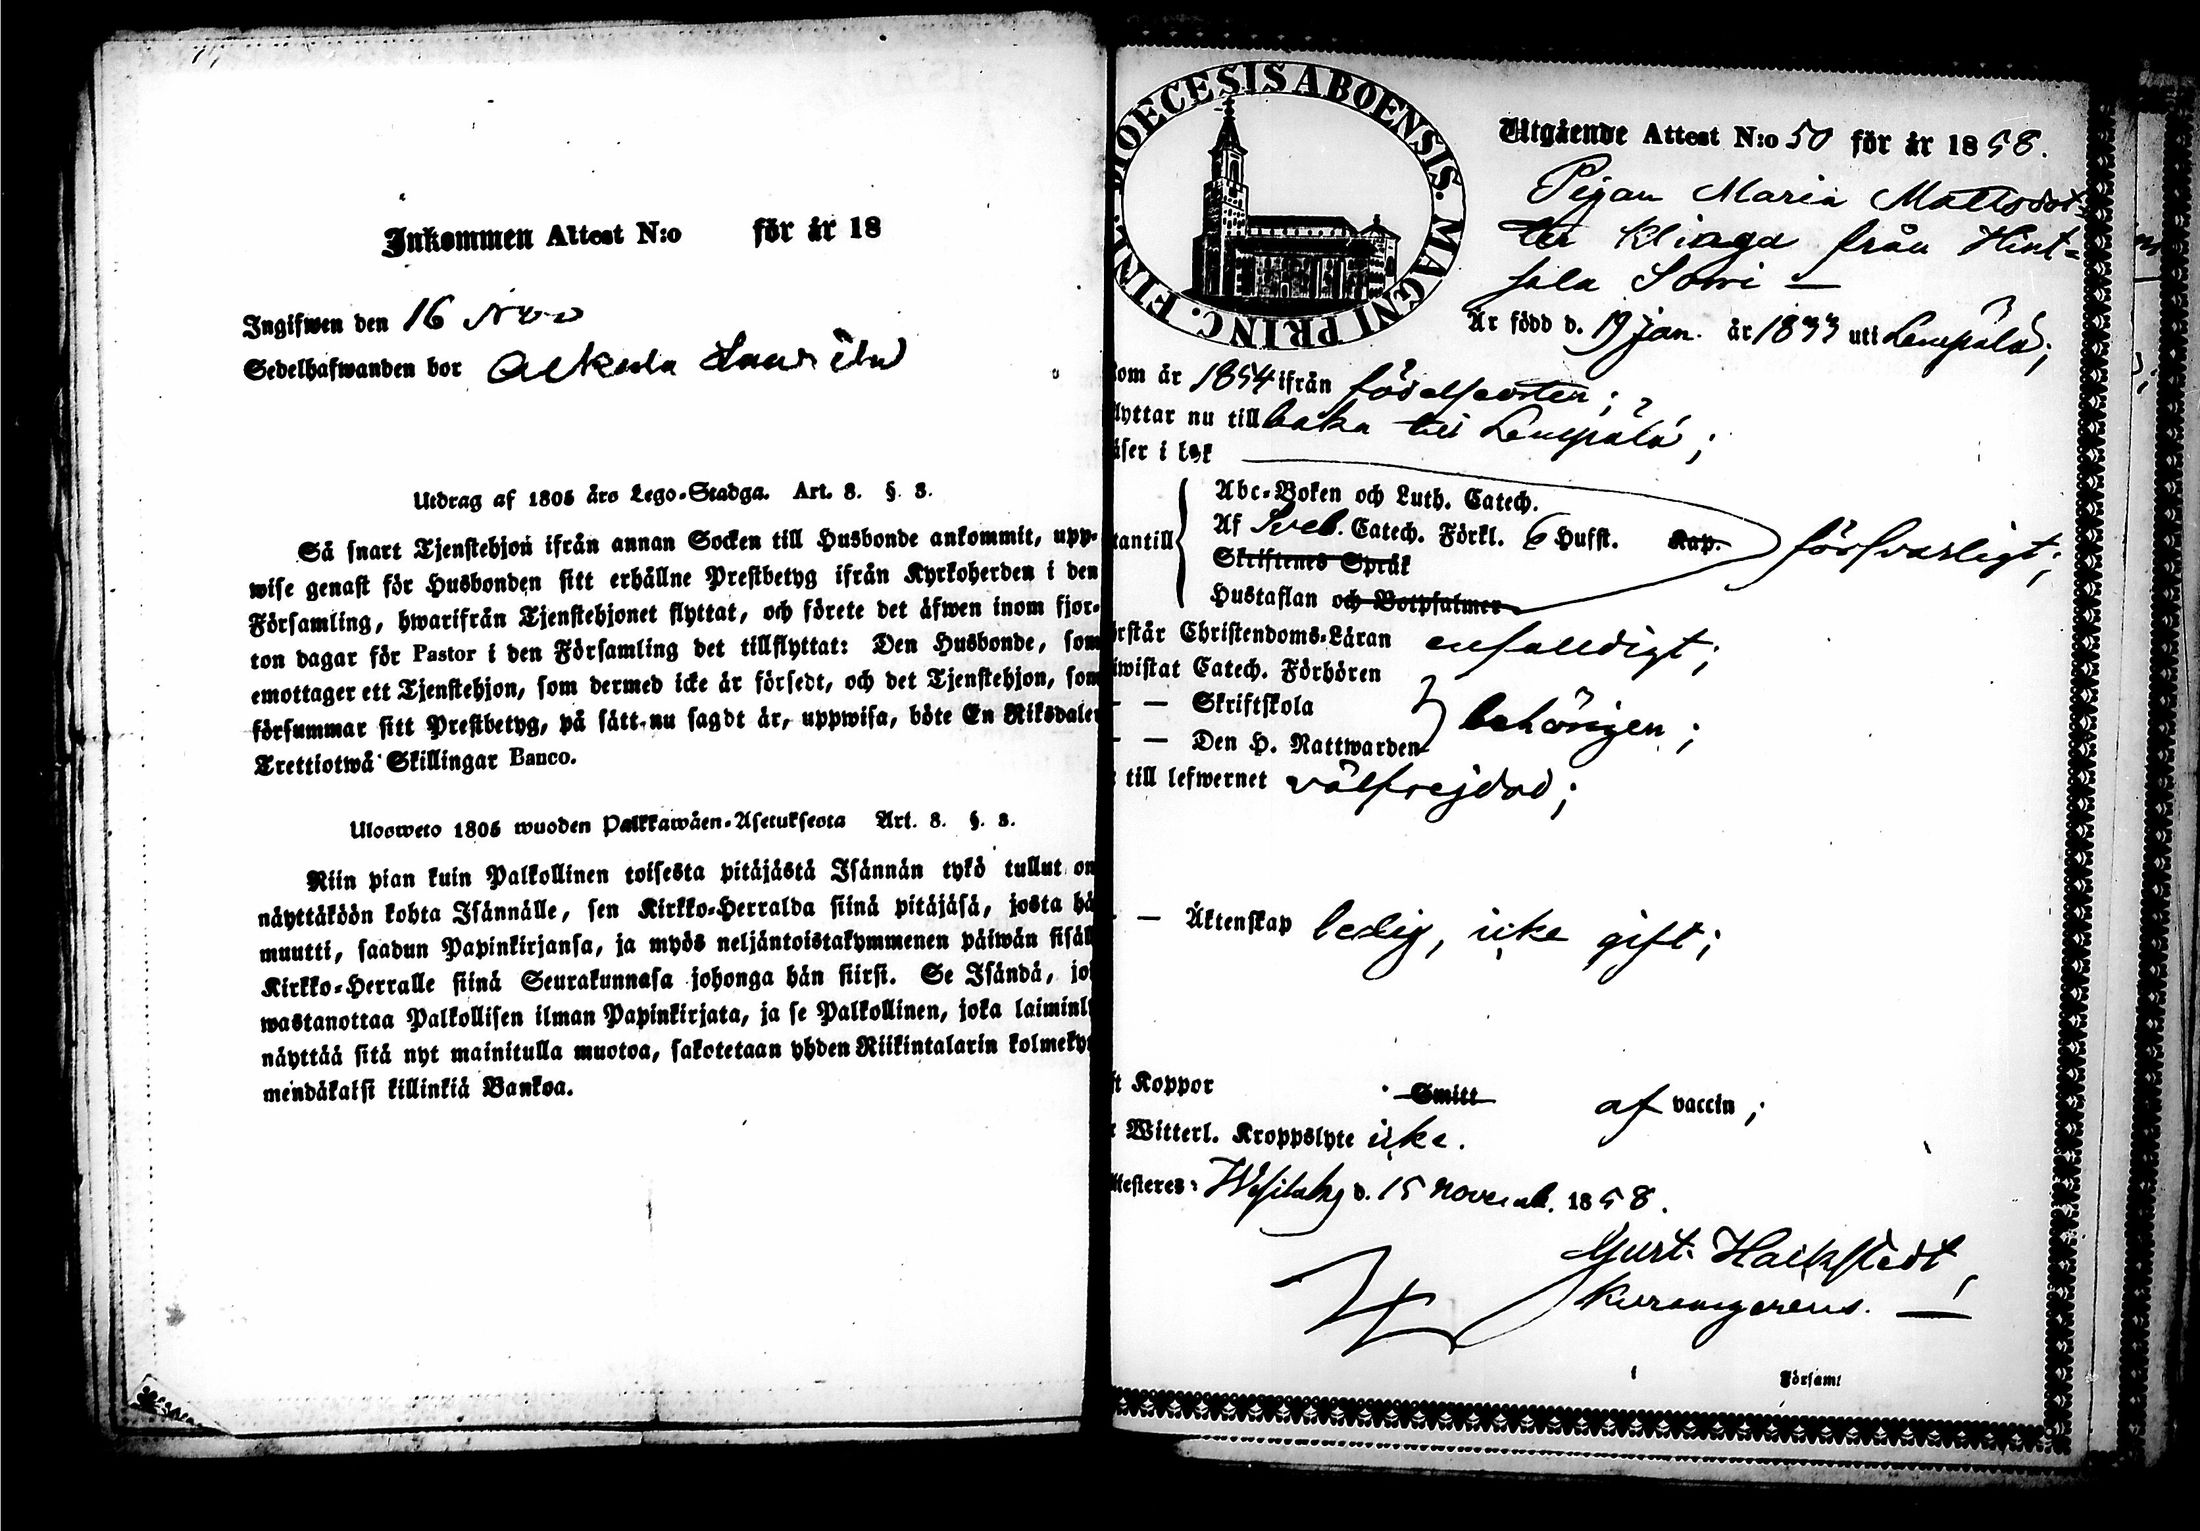 Inkommen Attest N:o för år 18
Ingifwen den 16 Nov
Sedelhafwanden bor Alkula
Utdrag af 1805 års Lego-Stadga. Art. 8. §. 3.
Så snart Tjenstehjon ifrån annan Socken till Husbonde ankommit, upp-
wise genast för Husbonden sitt erhållne Prestbetyg ifrån Kyrkoherden i den
Församling, hwarifrån Tjenstehjonet flyttat, och förete det äfwen inom fjor-
ton dagar för Pastor i den Församling det tillflyttat: Den Husbonde, som
emottager ett Tjenstehjon, som dermed icke är försedt, och det Tjenstehjon, som
försummar sitt Prestbetyg, på sätt nu sagdt är, uppwisa, böte En Riksdaler
Trettiotwå Skillingar Banco.
Ulosweto 1805 wuoden Palkkawäen-Asetuksesta Art. 8. §. 3.
Niin pian kuin Palkollinen toisesta pitäjästä Isännän tykö tullut on
näyttäköön kohta Isännälle, sen Kirkko-Herralda siinä pitäjäsä, josta hä
muutti, saadun Papinkirjansa, ja myös neljäntoistakymmenen päiwän sisäll
Kirkko-Herralle siinä Seurakunnasa johonga hän siirsi. Se Isändä, jo
wastanottaa Palkollisen ilman Papinkirjata, ja se Palkollinen, joka laiminly
näyttää sitä nyt mainitulla muotoa, sakotetaan yhden Riikintalarin kolmeky
mendäkaksi killinkiä Bankoa.
DIOECESIS ABOENSIS. MAGNI PRINC. FINL.
Utgående Attest N:o 50 för år 1858.
Pigan Maria Mattsdot-
ter Kliaga från Hint-
sala Sowi —
Är född d. 19 Jan. år 1833 uti Lempälä;
kom år 1854 ifrån födelseorten;
flyttar nu till baka till Lempälä;
läser i bok
Abc-Boken och Luth. Catech.
utantill Af Sveb. Catech. Förkl. 6 Hufst. Kap. försvarligt;
Skriftenes Språk
Hustaflan och Botpsalmer
örstår Christendoms-Läran enfalldigt;
iwistat Catech. Förhören
— — Skriftskola behörigen;
— — Den H. Nattwarden
till lefwernet välfrejdad;
— — Äktenskap ledig, icke gift;
ft Koppor Smitt af vaccin;
Witterl. Kroppslyte icke.
ttesteres: Wesilaks d. 15 Novemb. 1858.
Gust. Hackstedt,
i Församl